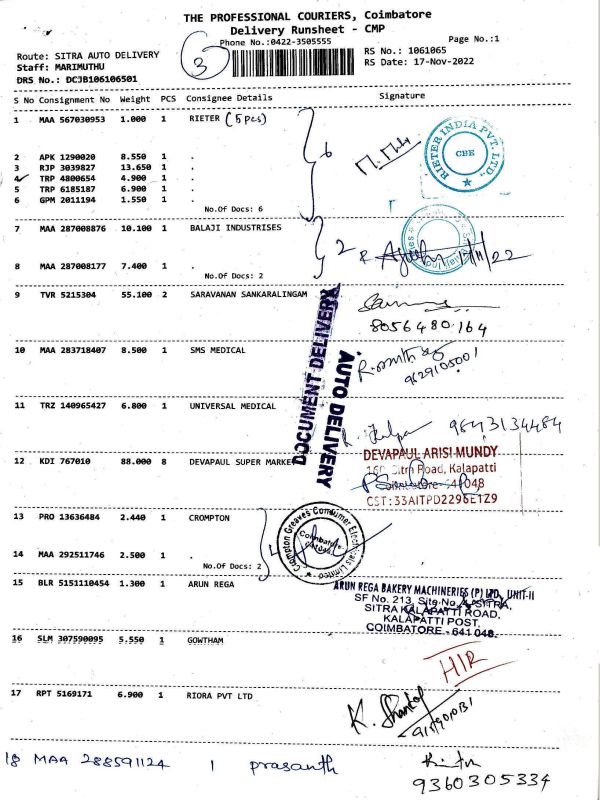 THE PROFESSIONAL COURIERS, Coimbatore
Delivery Runsheet - CMP
Phone No.:0422-3505555
Page No.:1
3
Route: SITRA AUTO DELIVERY
Staff: MARIMUTHU
DRS No.: DCJB106106501
RS No.: 1061065
RS Date: 17-Nov-2022
S No Consignment No Weight PCS Consignee Details Signature
1 MAA 567030953 1.000 1 RIETER (5 pcs)
2 APK 1290020 8.550 1 .
3 RJP 3039827 13.650 1 .
4 TRP 4800654 4.900 1 .
5 TRP 6185187 6.900 1 .
6 GPM 2011194 1.550 1 .
No.Of Docs: 6
6
RIETER INDIA PVT. LTD.
CBE
7 MAA 287008876 10.100 1 BALAJI INDUSTRISES
8 MAA 287008177 7.400 1 .
No.Of Docs: 2
2
17/11/22
9 TVR 5215304 55.100 2 SARAVANAN SANKARALINGAM
8056480164
DOCUMENT DELIVERY
AUTO DELIVERY
10 MAA 283718407 8.500 1 SMS MEDICAL
9629105001
11 TRZ 140965427 6.800 1 UNIVERSAL MEDICAL
9843134484
12 KDI 767010 88.000 8 DEVAPAUL SUPER MARKET
DEVAPAUL ARISI MUNDY
Sitra Road, Kalapatti
Coimbatore-641048
CST:33AITPD2296E1Z9
13 PRO 13636484 2.440 1 CROMPTON
14 MAA 292511746 2.500 1 .
No.Of Docs: 2
Crompton Greaves Consumer Electricals Limited
Coimbatore
15 BLR 5151110454 1.300 1 ARUN REGA
ARUN REGA BAKERY MACHINERIES (P) LTD, UNIT-II
SF No. 213, Site No. 4, SITRA,
SITRA KALAPATTI ROAD,
KALAPATTI POST,
COIMBATORE - 641 048.
16 SLM 307590095 5.550 1 GOWTHAM
HIR
17 RPT 5169171 6.900 1 RIORA PVT LTD
18 MAA 288591124 1 prasanth
9360305334